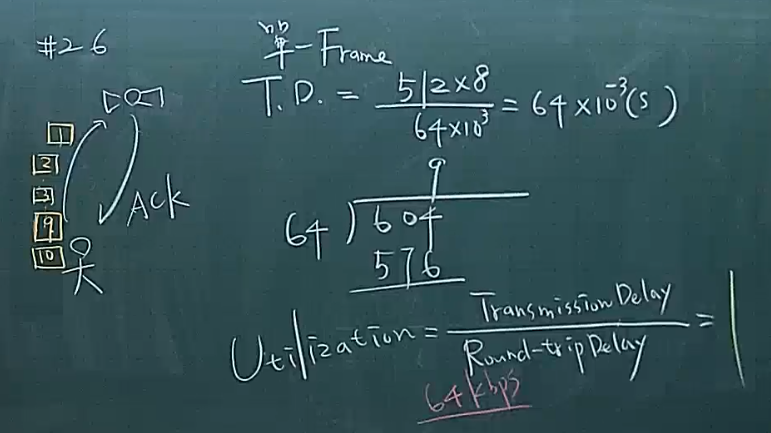 #26
單-Frame
T.D. = 512×8 / 64×10³ = 64×10⁻³(s)
1
2
3
9
10
Ack
9
64)604
576
Utilization = Transmission Delay / Round-trip Delay = 1
64kbps